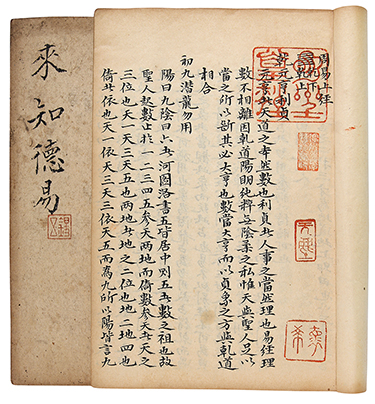 來知德易
周易上經
乾元亨利貞
元亨者天道之本然數也利貞者人事之當然理也易經理
數不相離因乾道陽明純粹無陰柔之私惟天與聖人足以
當之所以斷其必大亨也數當大亨而以貞處之方與乾道
相合
初九潛龍勿用
陽曰九陰曰六者河圖洛書五皆居中則五者數之祖也故
聖人起數止於一二三四五參天兩地而倚數參天者天之
三位也天一天三天五也兩地者地之二位也地二地四也
倚者依也天一依天三天三依天五而為九所以陽皆言九